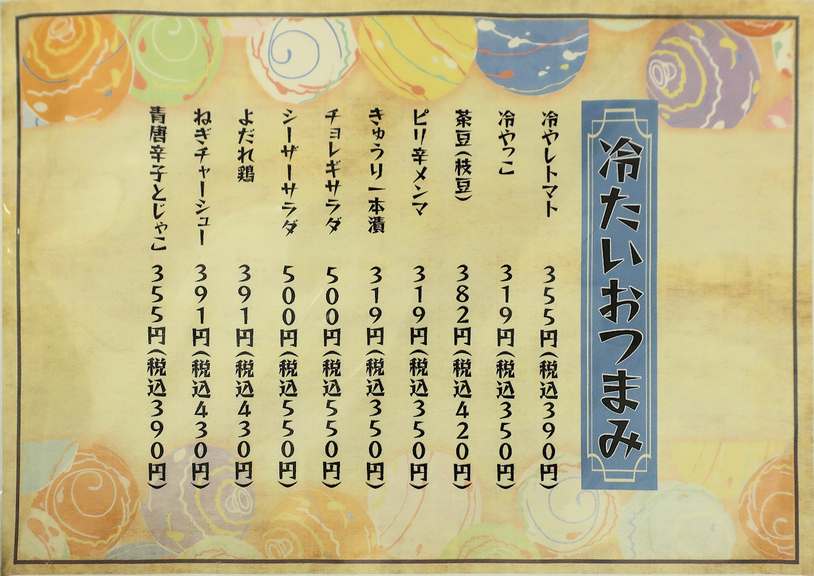 冷たいおつまみ
冷やしトマト 355円(税込390円)
冷やっこ 319円(税込350円)
茶豆(枝豆) 382円(税込420円)
ピリ辛メンマ 319円(税込350円)
きゅうり一本漬 319円(税込350円)
チョレギサラダ 500円(税込550円)
シーザーサラダ 500円(税込550円)
よだれ鶏 391円(税込430円)
ねぎチャーシュー 391円(税込430円)
青唐辛子とじゃこ 355円(税込390円)